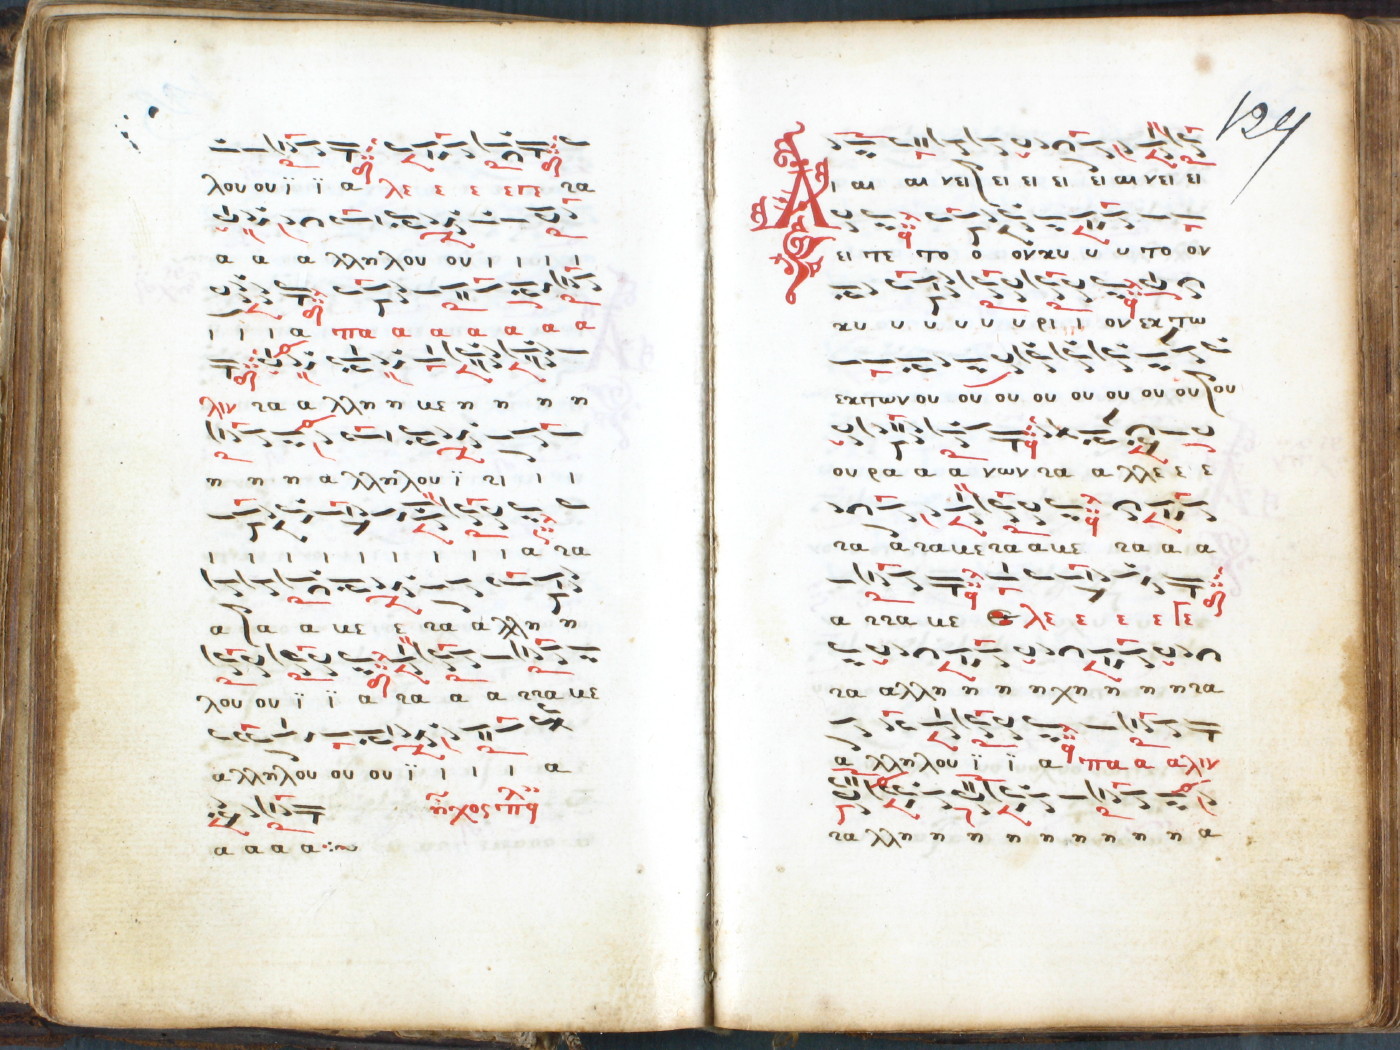 λου ου ϊ ϊ α λε ε ε ε επε τα
α α α λληλου ου ι ι ι ι
ι ι ι α πα α α α α α α
λιν τα α λλη η με η η η η
η η η α λληλου ϊ τι ι ι
ι ι ι ι ι ι ι ι α τα
α α α με ε τα α λλη η
λου ου ϊ ϊ α τα α α τταμε
αλληλου ου ου ϊ ι ι ι α
α α α α
ηχος πλ
124
Α ι αι αι νει ει ει ει ει αι νει ει
ει τε το ο ον κυ υ υ το ον
κυ υ υ υ υ υ ρι ι ον εκ τω
εκ των ου ου ου ου ου ου ου ου ου
ου ρα α α νων τα α λλε ε ε
τα α τα με τα α με τα α α
α ττα με λε ε ε ε γε
τα αλλη η η η χη η η η τα
α λληλου ϊ ϊ α πα α αλιν
τα λλη η η η η η η η η α